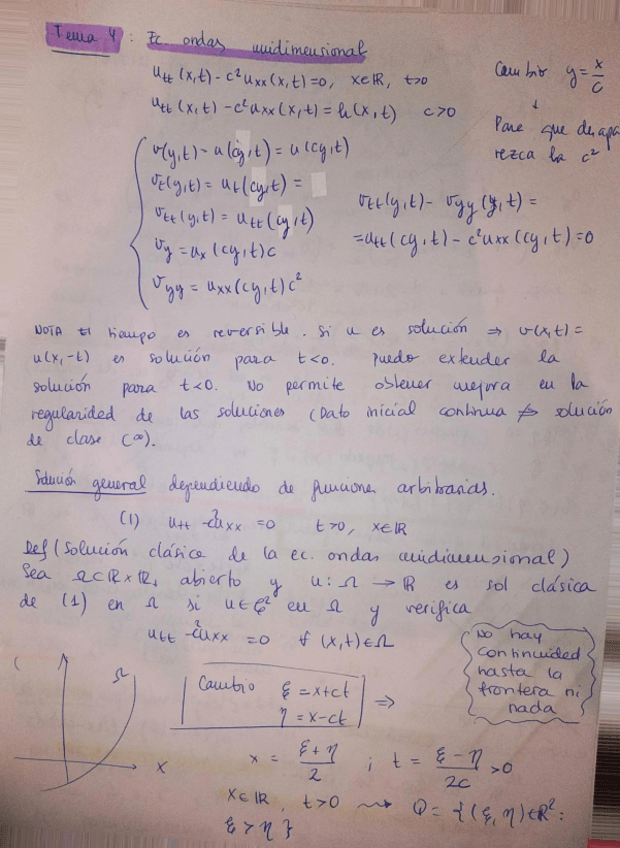 Tema 4: Ec. ondas unidimensional
u_tt (x,t) - c² u_xx (x,t) = 0, x∈ℝ, t>0
u_tt (x,t) - c² u_xx (x,t) = h(x,t) c>0
Cambio y = x/c
↓
Para que desapa
rezca la c²
v(y,t) = u(cy,t) = u(cy,t)
v_t(y,t) = u_t(cy,t) =
v_tt(y,t) = u_tt(cy,t)
v_y = u_x(cy,t)c
v_yy = u_xx(cy,t)c²
v_tt(y,t) - v_yy(y,t) =
= u_tt(cy,t) - c² u_xx(cy,t) = 0
NOTA El tiempo es reversible. Si u es solución ⇒ v(x,t) =
u(x,-t) es solución para t<0. Puedo extender la
solución para t<0. No permite obtener mejora en la
regularidad de las soluciones (Dato inicial continua ⇏ solución
de clase C^∞).
Solución general dependiendo de funciones arbitrarias.
(1) u_tt - c² u_xx = 0 t>0, x∈ℝ
Def (Solución clásica de la ec. ondas unidimensional)
Sea Ω⊂ℝ×ℝ₊ abierto y u: Ω → ℝ es sol clásica
de (1) en Ω si u∈C² en Ω y verifica
u_tt - c² u_xx = 0 ∀ (x,t)∈Ω
No hay
continuidad
hasta la
frontera ni
nada
Ω
x
Cambio ξ = x+ct
η = x-ct
⇒
x = (ξ+η)/2 ; t = (ξ-η)/2c > 0
x∈ℝ, t>0 ⇝ Q = {(ξ,η)∈ℝ²:
ξ>η}